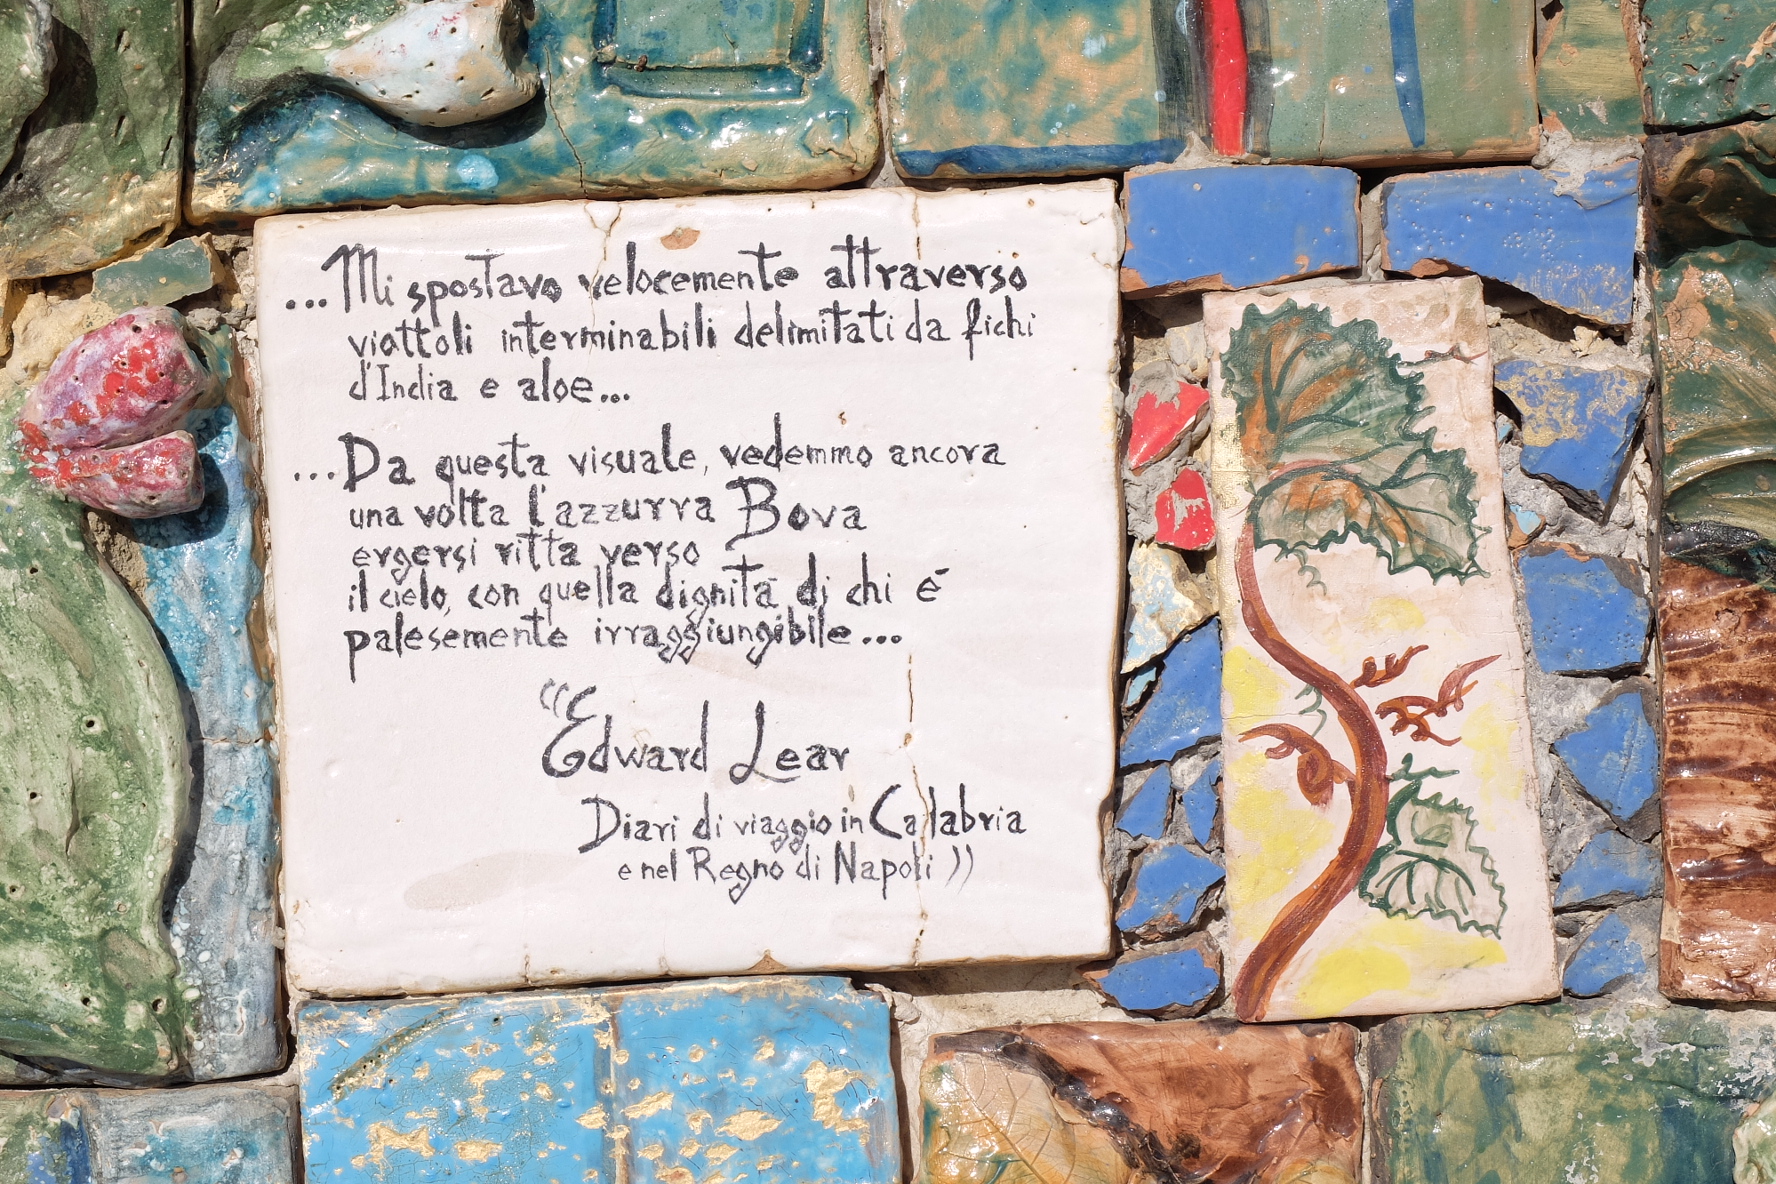 ...Mi spostavo velocemente attraverso
viottoli interminabili delimitati da fichi
d'India e aloe...
...Da questa visuale, vedemmo ancora
una volta l'azzurra Bova
ergersi ritta verso
il cielo, con quella dignità di chi é
palesemente irraggiungibile...
“Edward Lear
Diari di viaggio in Calabria
e nel Regno di Napoli ”